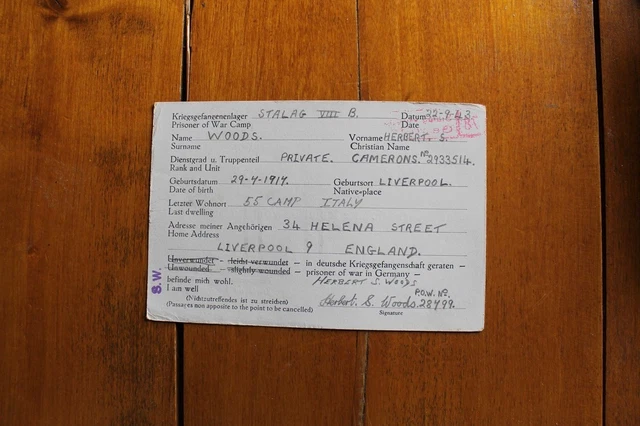 Kriegsgefangenenlager STALAG VIII B. Datum 22-9-43
Prisoner of War Camp Date
Name WOODS. Vorname HERBERT. S.
Surname Christian Name
Dienstgrad u. Truppenteil PRIVATE. CAMERONS. No 2933514.
Rank and Unit
Geburtsdatum 29-4-1917. Geburtsort LIVERPOOL.
Date of birth Native-place
Letzter Wohnort 55 CAMP ITALY
Last dwelling
Adresse meiner Angehörigen 34 HELENA STREET
Home Address
LIVERPOOL 9 ENGLAND.
Unverwundet - leicht verwundet - in deutsche Kriegsgefangenschaft geraten -
Unwounded - slightly wounded - prisoner of war in Germany -
befinde mich wohl. HERBERT S. WOODS
I am well P.O.W. No.
(Nichtzutreffendes ist zu streichen) Herbert. S. Woods. 28499.
(Passages non apposite to the point to be cancelled) Signature
S.W.